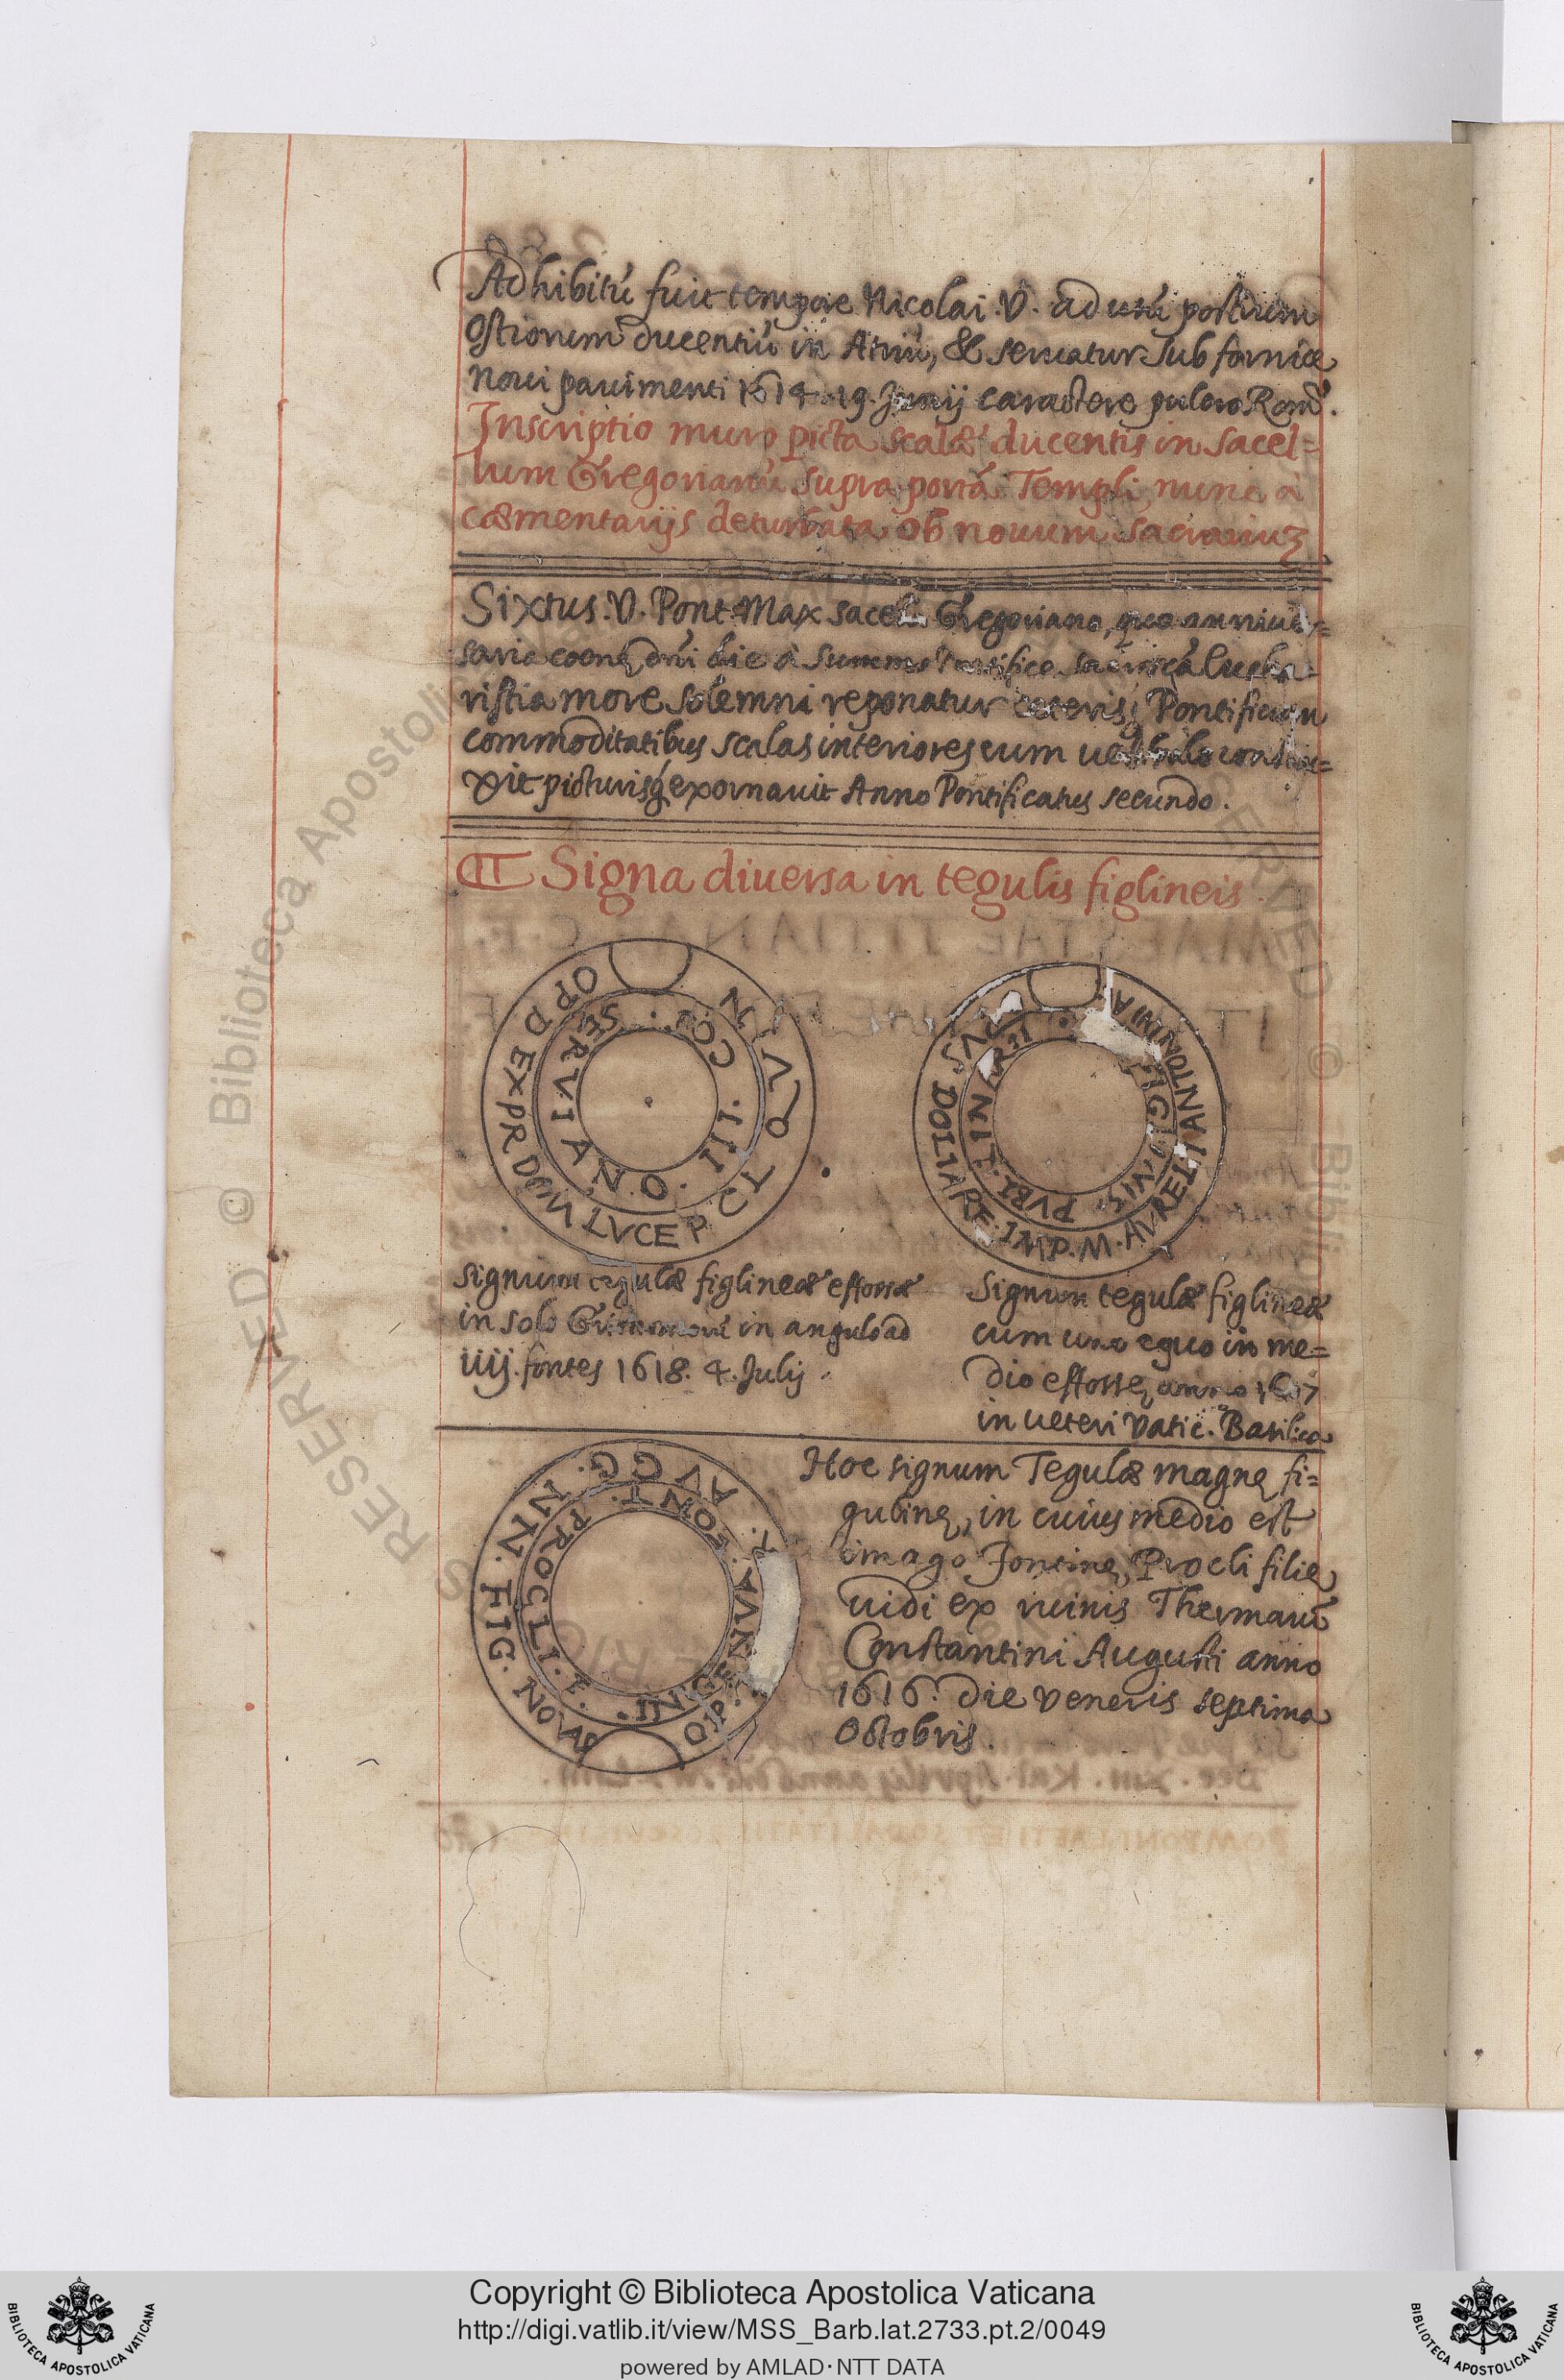 Adhibitũ fuit tempore Nicolai .V. ad usũ postium
Ostiorum ducentiũ in Atriũ, & seruatur sub fornice
noui pauimenti 1614. 19. Junij caractere pulcro Rom.
Inscriptio muro picta scalæ ducentis in sacel=
lum Gregorianũ supra portã Templi, nunc a
cæmentarijs deturbata ob nouum sacrarium
Sixtus .V. Pont. Max sacello Gregoriano, quo anniuer=
saria coenę dñi die à summo Pontifice sacrosctã Eucha=
ristia more solemni reponatur ceterisq́ Pontificum
commoditatibus scalas interiores cum uestibulo constru=
xit picturisq́ exornauit Anno Pontificatus secundo.
Signa diuersa in tegulis figlineis
OP D EX PR DOM LVCE P
SERVIANO. III. COS
SVS DOLIARE. IMP. M. AVRELI ANTONINI A
FIGLINIS
Signum tegulæ figlineæ effossæ
in solo in angulo ad
iiij. fontes 1618. 4. Julij
Signum tegulæ figlineæ
cum uno equo in me=
dio effossę anno 1607
in ueteri Vatic. Basilica
OP. AVGG. NN. FIG. NOVAS
FONT. PROCLI.
Hoc signum Tegulæ magnę fi=
gulinę, in cuius medio est
imago Fontinę, Procli filię
uidi ex ruinis Thermarũ
Constantini Augusti anno
1616. die Veneris septima
Octobris.
Copyright © Biblioteca Apostolica Vaticana
http://digi.vatlib.it/view/MSS_Barb.lat.2733.pt.2/0049
powered by AMLAD·NTT DATA
BIBLIOTECA APOSTOLICA VATICANA
BIBLIOTECA APOSTOLICA VATICANA